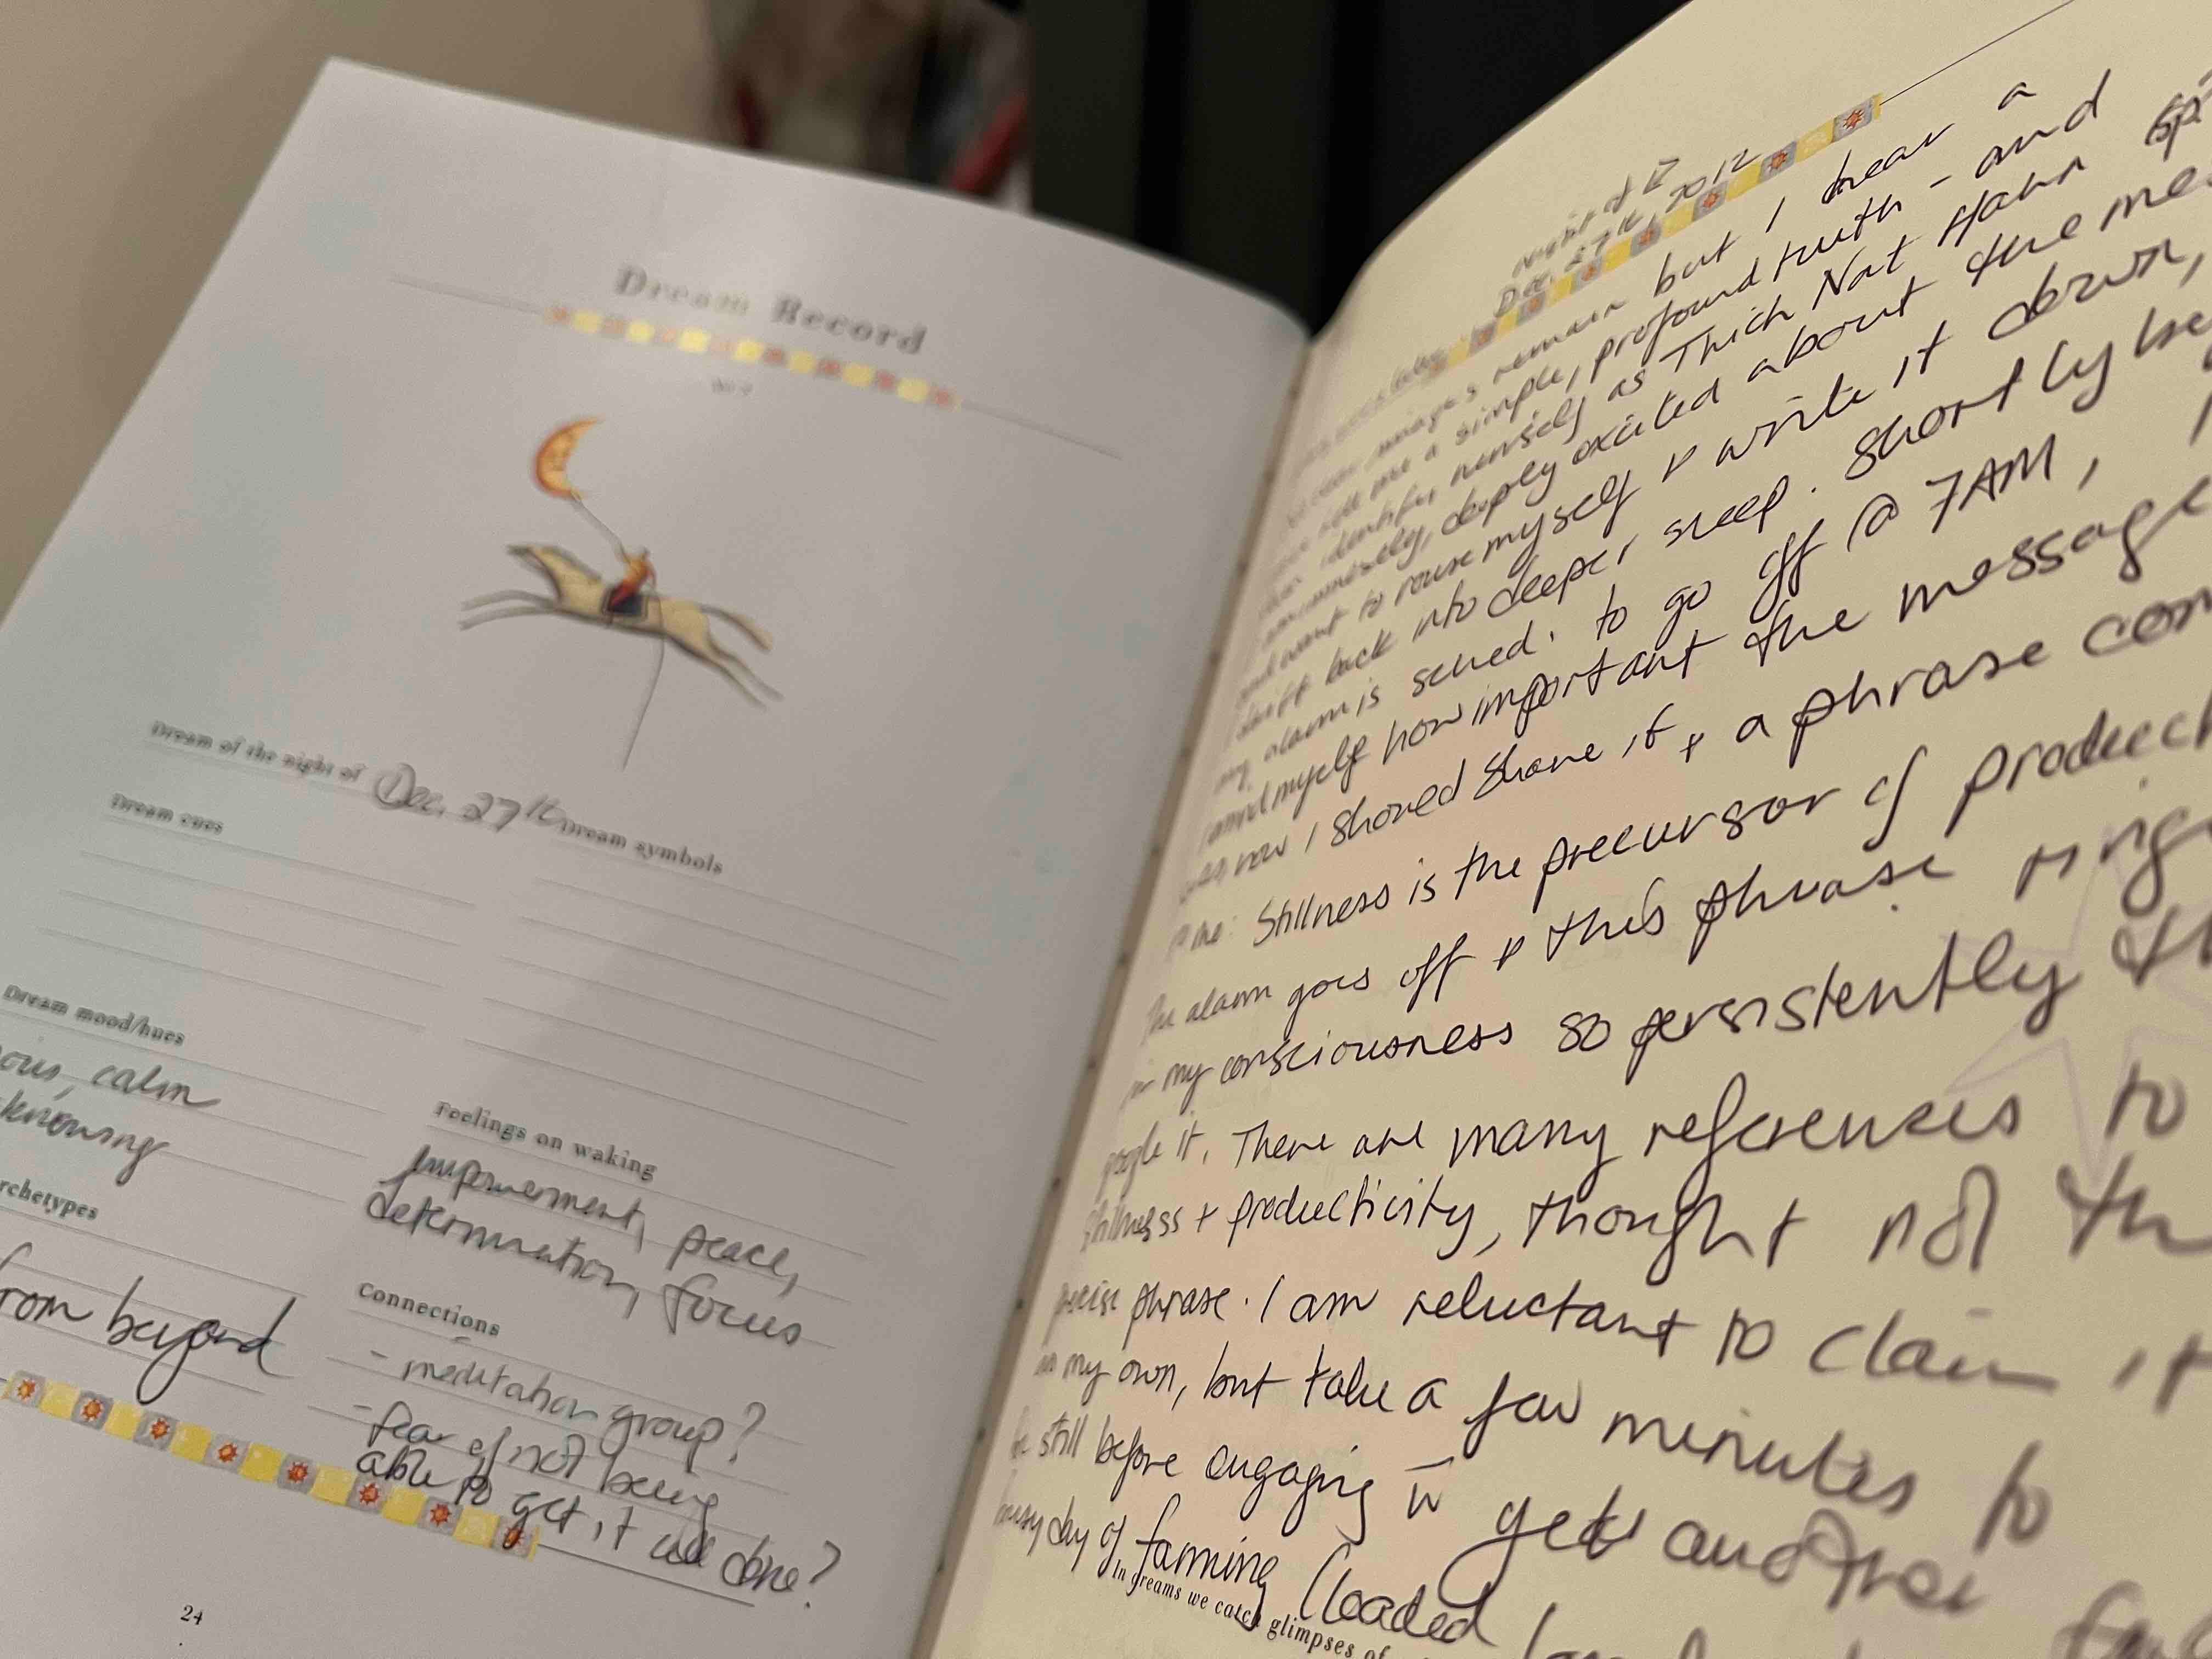 Dream Record
Dream of the night of Dec. 27th
Dream cues
Dream symbols
Dream mood/hues
calm
knowing
rchetypes
rom beyond
Feelings on waking
Empowerment, peace,
determination, focus
Connections
- meditation group?
- fear of not being
able to get it all done?
24
night of
Dec. 27th, 2012
images remain but I hear a
a simple, profound truth - and
identify as Thich Nat Hahn
deeply excited about the mes
and want to rouse myself & write it down,
drift back into deeper sleep. Shortly be
my alarm is sched. to go off @ 7AM, I
remind myself how important the message
was, how I should share it & a phrase com
to me: Stillness is the precursor of product
The alarm goes off & this phrase rings
in my consciousness so persistently th
google it. There are many references to
stillness + productivity, thought not th
precise phrase. I am reluctant to claim it
as my own, but take a few minutes to
be still before engaging w yet another
busy day of farming (loaded
In dreams we catch glimpses of